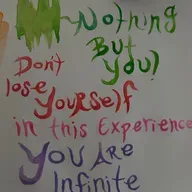 ~Nothing
But
You!
Don't
lose
Yourself
in this Experience
You Are
Infinite